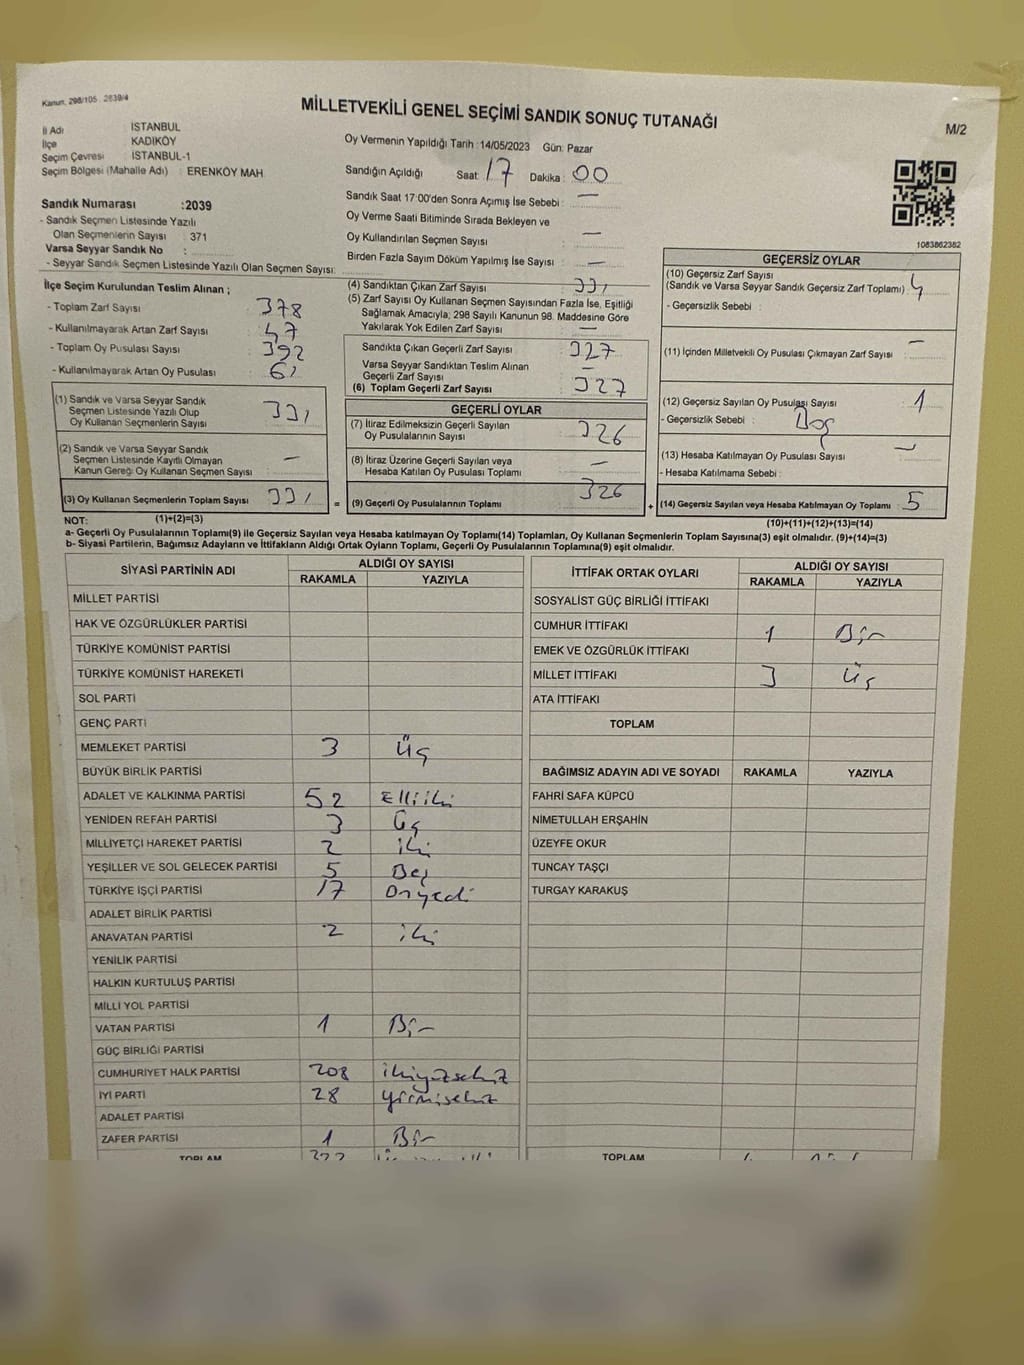 Kanun: 298/105 . 2839/4
MİLLETVEKİLİ GENEL SEÇİMİ SANDIK SONUÇ TUTANAĞI
M/2
İl Adı İSTANBUL
İlçe KADIKÖY
Seçim Çevresi İSTANBUL-1
Seçim Bölgesi (Mahalle Adı) : ERENKÖY MAH
Oy Vermenin Yapıldığı Tarih :14/05/2023 Gün: Pazar
Sandığın Açıldığı Saat: 17 Dakika : 00
Sandık Saat 17:00'den Sonra Açımış İse Sebebi : —
Oy Verme Saati Bitiminde Sırada Bekleyen ve
Oy Kullandırılan Seçmen Sayısı : —
Birden Fazla Sayım Döküm Yapılmış İse Sayısı : —
1083862382
Sandık Numarası :2039
- Sandık Seçmen Listesinde Yazılı
Olan Seçmenlerin Sayısı : 371
Varsa Seyyar Sandık No :
- Seyyar Sandık Seçmen Listesinde Yazılı Olan Seçmen Sayısı:
İlçe Seçim Kurulundan Teslim Alınan ;
- Toplam Zarf Sayısı : 378
- Kullanılmayarak Artan Zarf Sayısı : 47
- Toplam Oy Pusulası Sayısı : 392
- Kullanılmayarak Artan Oy Pusulası : 61
(1) Sandık ve Varsa Seyyar Sandık
Seçmen Listesinde Yazılı Olup
Oy Kullanan Seçmenlerin Sayısı : 331
(2) Sandık ve Varsa Seyyar Sandık
Seçmen Listesinde Kayıtlı Olmayan
Kanun Gereği Oy Kullanan Seçmen Sayısı : —
(3) Oy Kullanan Seçmenlerin Toplam Sayısı : 331 =
(4) Sandıktan Çıkan Zarf Sayısı : 331
(5) Zarf Sayısı Oy Kullanan Seçmen Sayısından Fazla İse, Eşitliği
Sağlamak Amacıyla, 298 Sayılı Kanunun 98. Maddesine Göre
Yakılarak Yok Edilen Zarf Sayısı : —
Sandıkta Çıkan Geçerli Zarf Sayısı : 327
Varsa Seyyar Sandıktan Teslim Alınan
Geçerli Zarf Sayısı : —
(6) Toplam Geçerli Zarf Sayısı : 327
GEÇERLİ OYLAR
(7) İtiraz Edilmeksizin Geçerli Sayılan
Oy Pusulalarının Sayısı : 326
(8) İtiraz Üzerine Geçerli Sayılan veya
Hesaba Katılan Oy Pusulası Toplamı : —
(9) Geçerli Oy Pusulalarının Toplamı : 326 +
GEÇERSİZ OYLAR
(10) Geçersiz Zarf Sayısı
(Sandık ve Varsa Seyyar Sandık Geçersiz Zarf Toplamı) : 4
- Geçersizlik Sebebi :
(11) İçinden Milletvekili Oy Pusulası Çıkmayan Zarf Sayısı : —
(12) Geçersiz Sayılan Oy Pusulası Sayısı : 1
- Geçersizlik Sebebi : Boş
(13) Hesaba Katılmayan Oy Pusulası Sayısı : —
- Hesaba Katılmama Sebebi :
(14) Geçersiz Sayılan veya Hesaba Katılmayan Oy Toplamı : 5
NOT: (1)+(2)=(3)
(10)+(11)+(12)+(13)=(14)
a- Geçerli Oy Pusulalarının Toplamı(9) ile Geçersiz Sayılan veya Hesaba katılmayan Oy Toplamı(14) Toplamları, Oy Kullanan Seçmenlerin Toplam Sayısına(3) eşit olmalıdır. (9)+(14)=(3)
b- Siyasi Partilerin, Bağımsız Adayların ve İttifakların Aldığı Ortak Oyların Toplamı, Geçerli Oy Pusulalarının Toplamına(9) eşit olmalıdır.
SİYASİ PARTİNİN ADI ALDIĞI OY SAYISI
RAKAMLA YAZIYLA
MİLLET PARTİSİ
HAK VE ÖZGÜRLÜKLER PARTİSİ
TÜRKİYE KOMÜNİST PARTİSİ
TÜRKİYE KOMÜNİST HAREKETİ
SOL PARTİ
GENÇ PARTİ
MEMLEKET PARTİSİ 3 Üç
BÜYÜK BİRLİK PARTİSİ
ADALET VE KALKINMA PARTİSİ 52 Elliiki
YENİDEN REFAH PARTİSİ 3 Üç
MİLLİYETÇİ HAREKET PARTİSİ 2 iki
YEŞİLLER VE SOL GELECEK PARTİSİ 5 Beş
TÜRKİYE İŞÇİ PARTİSİ 17 Onyedi
ADALET BİRLİK PARTİSİ
ANAVATAN PARTİSİ 2 iki
YENİLİK PARTİSİ
HALKIN KURTULUŞ PARTİSİ
MİLLİ YOL PARTİSİ
VATAN PARTİSİ 1 Bir
GÜÇ BİRLİĞİ PARTİSİ
CUMHURİYET HALK PARTİSİ 208 ikiyüzsekiz
İYİ PARTİ 28 yirmisekiz
ADALET PARTİSİ
ZAFER PARTİSİ 1 Bir
TOPLAM 322
İTTİFAK ORTAK OYLARI ALDIĞI OY SAYISI
RAKAMLA YAZIYLA
SOSYALİST GÜÇ BİRLİĞİ İTTİFAKI
CUMHUR İTTİFAKI 1 Bir
EMEK VE ÖZGÜRLÜK İTTİFAKI
MİLLET İTTİFAKI 3 Üç
ATA İTTİFAKI
TOPLAM
BAĞIMSIZ ADAYIN ADI VE SOYADI RAKAMLA YAZIYLA
FAHRİ SAFA KÜPCÜ
NİMETULLAH ERŞAHİN
ÜZEYFE OKUR
TUNCAY TAŞÇI
TURGAY KARAKUŞ
TOPLAM